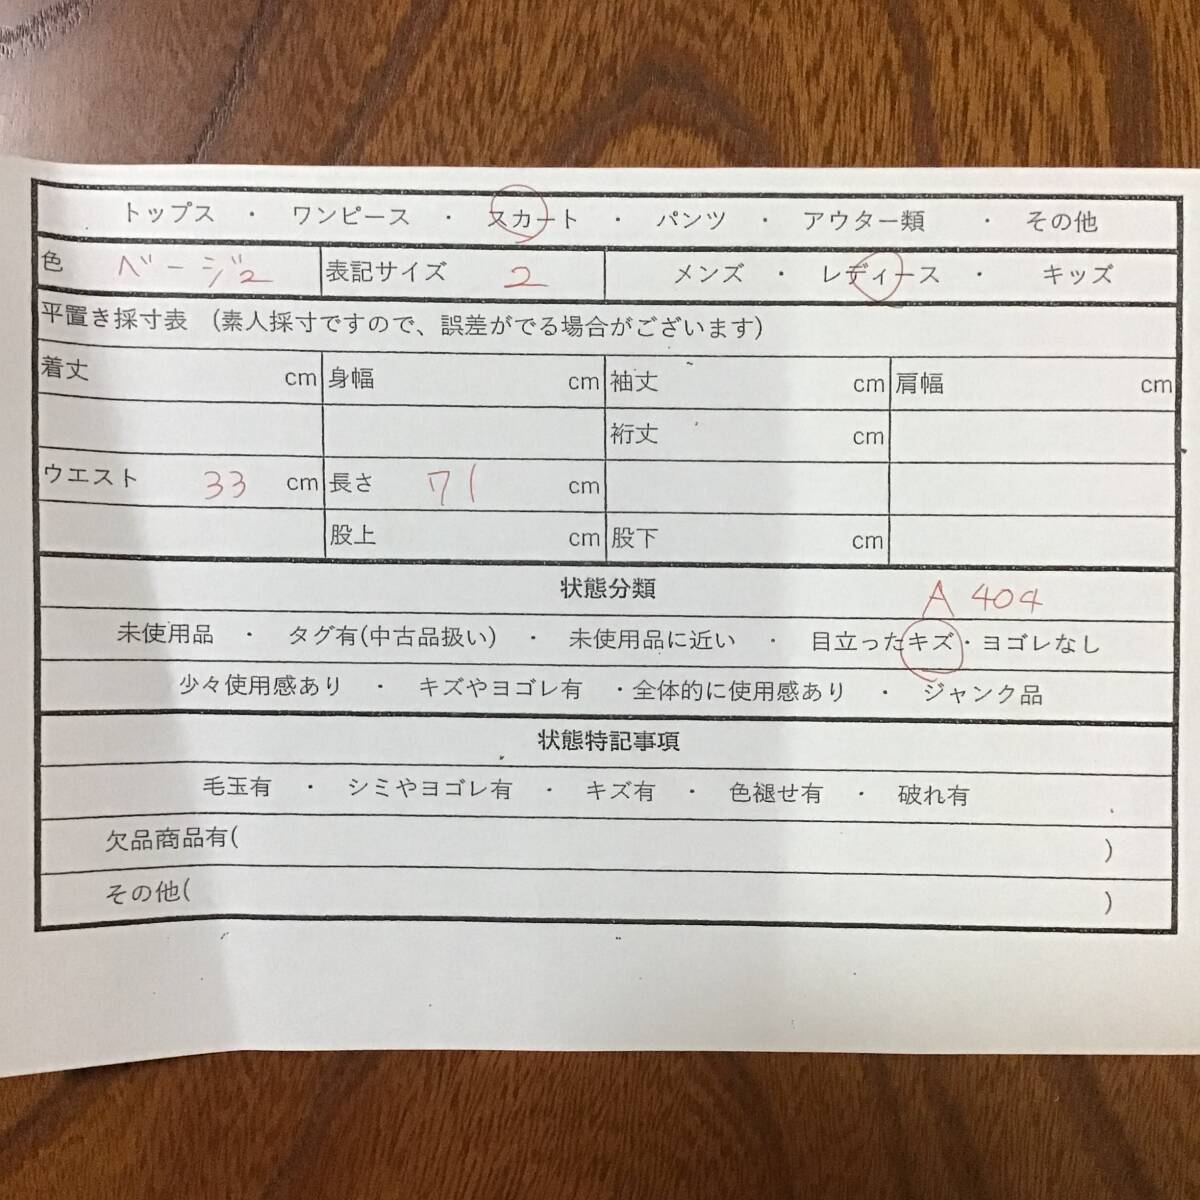 トップス ・ ワンピース ・ スカート ・ パンツ ・ アウター類 ・ その他
色 ベージュ 表記サイズ 2 メンズ ・ レディース ・ キッズ
平置き採寸表 (素人採寸ですので、誤差がでる場合がございます)
着丈 cm 身幅 cm 袖丈 cm 肩幅 cm
裄丈 cm
ウエスト 33 cm 長さ 71 cm
股上 cm 股下 cm
状態分類 A 404
未使用品 ・ タグ有(中古品扱い) ・ 未使用品に近い ・ 目立ったキズ・ヨゴレなし
少々使用感あり ・ キズやヨゴレ有 ・全体的に使用感あり ・ ジャンク品
状態特記事項
毛玉有 ・ シミやヨゴレ有 ・ キズ有 ・ 色褪せ有 ・ 破れ有
欠品商品有( )
その他( )